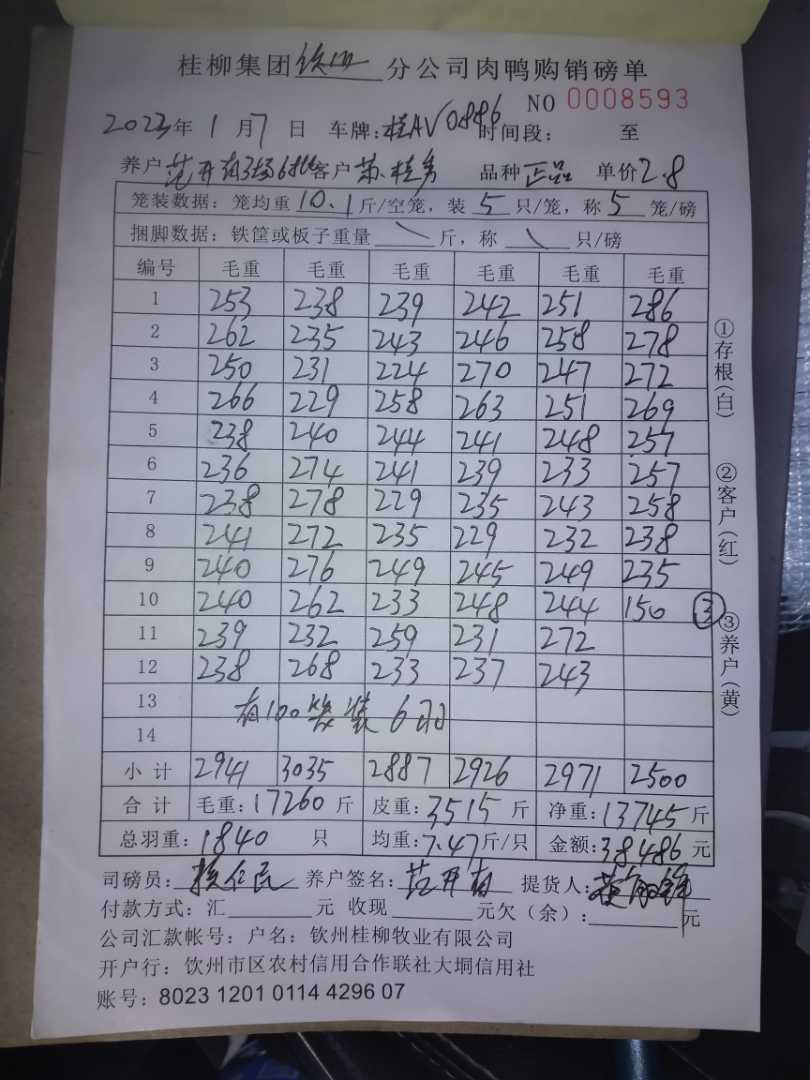 桂柳集团钦州分公司肉鸭购销磅单
NO 0008593
2023年 1 月 7 日 车牌:桂AV0886 时间段: 至
养户 范开有3场6批 客户 苏桂 品种 正品 单价 2.8
笼装数据:笼均重 10.1 斤/空笼,装 5 只/笼,称 5 笼/磅
捆脚数据:铁筐或板子重量 \ 斤,称 \ 只/磅
编号 毛重 毛重 毛重 毛重 毛重 毛重
1 253 238 239 242 251 286
2 262 235 243 246 258 278
3 250 231 224 270 247 272
4 266 229 258 263 251 269
5 238 240 244 241 248 257
6 236 274 241 239 233 257
7 238 278 229 235 243 258
8 241 272 235 229 232 238
9 240 276 249 245 249 235
10 240 262 233 248 244 150 ③
11 239 232 259 231 272
12 238 268 233 237 243
13
有100笼装6羽
14
小计 2941 3035 2887 2926 2971 2500
合计 毛重:17260 斤 皮重:3515 斤 净重:13745 斤
总羽重:1840 只 均重:7.47 斤/只 金额:38486 元
司磅员: 养户签名:范开有 提货人:
付款方式:汇 元 收现 元欠(余): 元
公司汇款帐号:户名:钦州桂柳牧业有限公司
开户行:钦州市区农村信用合作联社大垌信用社
账号:8023 1201 0114 4296 07
①存根(白)
②客户(红)
③养户(黄)